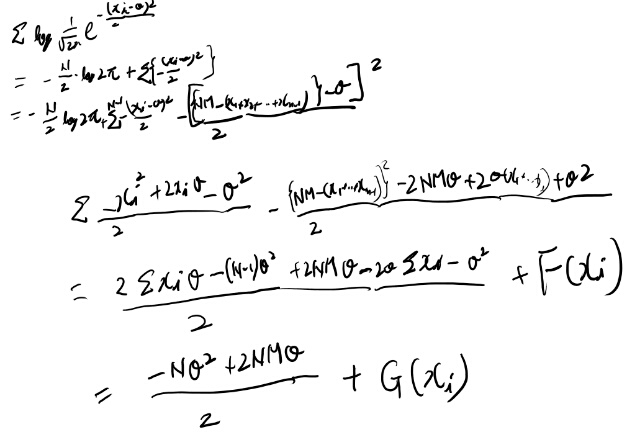 Σ log 1/√2π e^{-(x_i-θ)²/2}
= - N/2 · log 2π + Σ{-(x_i-θ)²/2}
= - N/2 log 2π + Σ^{N-1} -(x_i-θ)²/2 - [{NM-(x_1+x_2+...+x_{n-1})}-θ]²/2
Σ -x_i²+2x_iθ-θ²/2 - {NM-(x_1...x_{n-1})}²-2NMθ+2θ(x_1...)+θ2/2
= 2Σx_iθ-(N-1)θ²+2NMθ-2θΣx_i-θ²/2 + F(x_i)
= -Nθ²+2NMθ/2 + G(x_i)